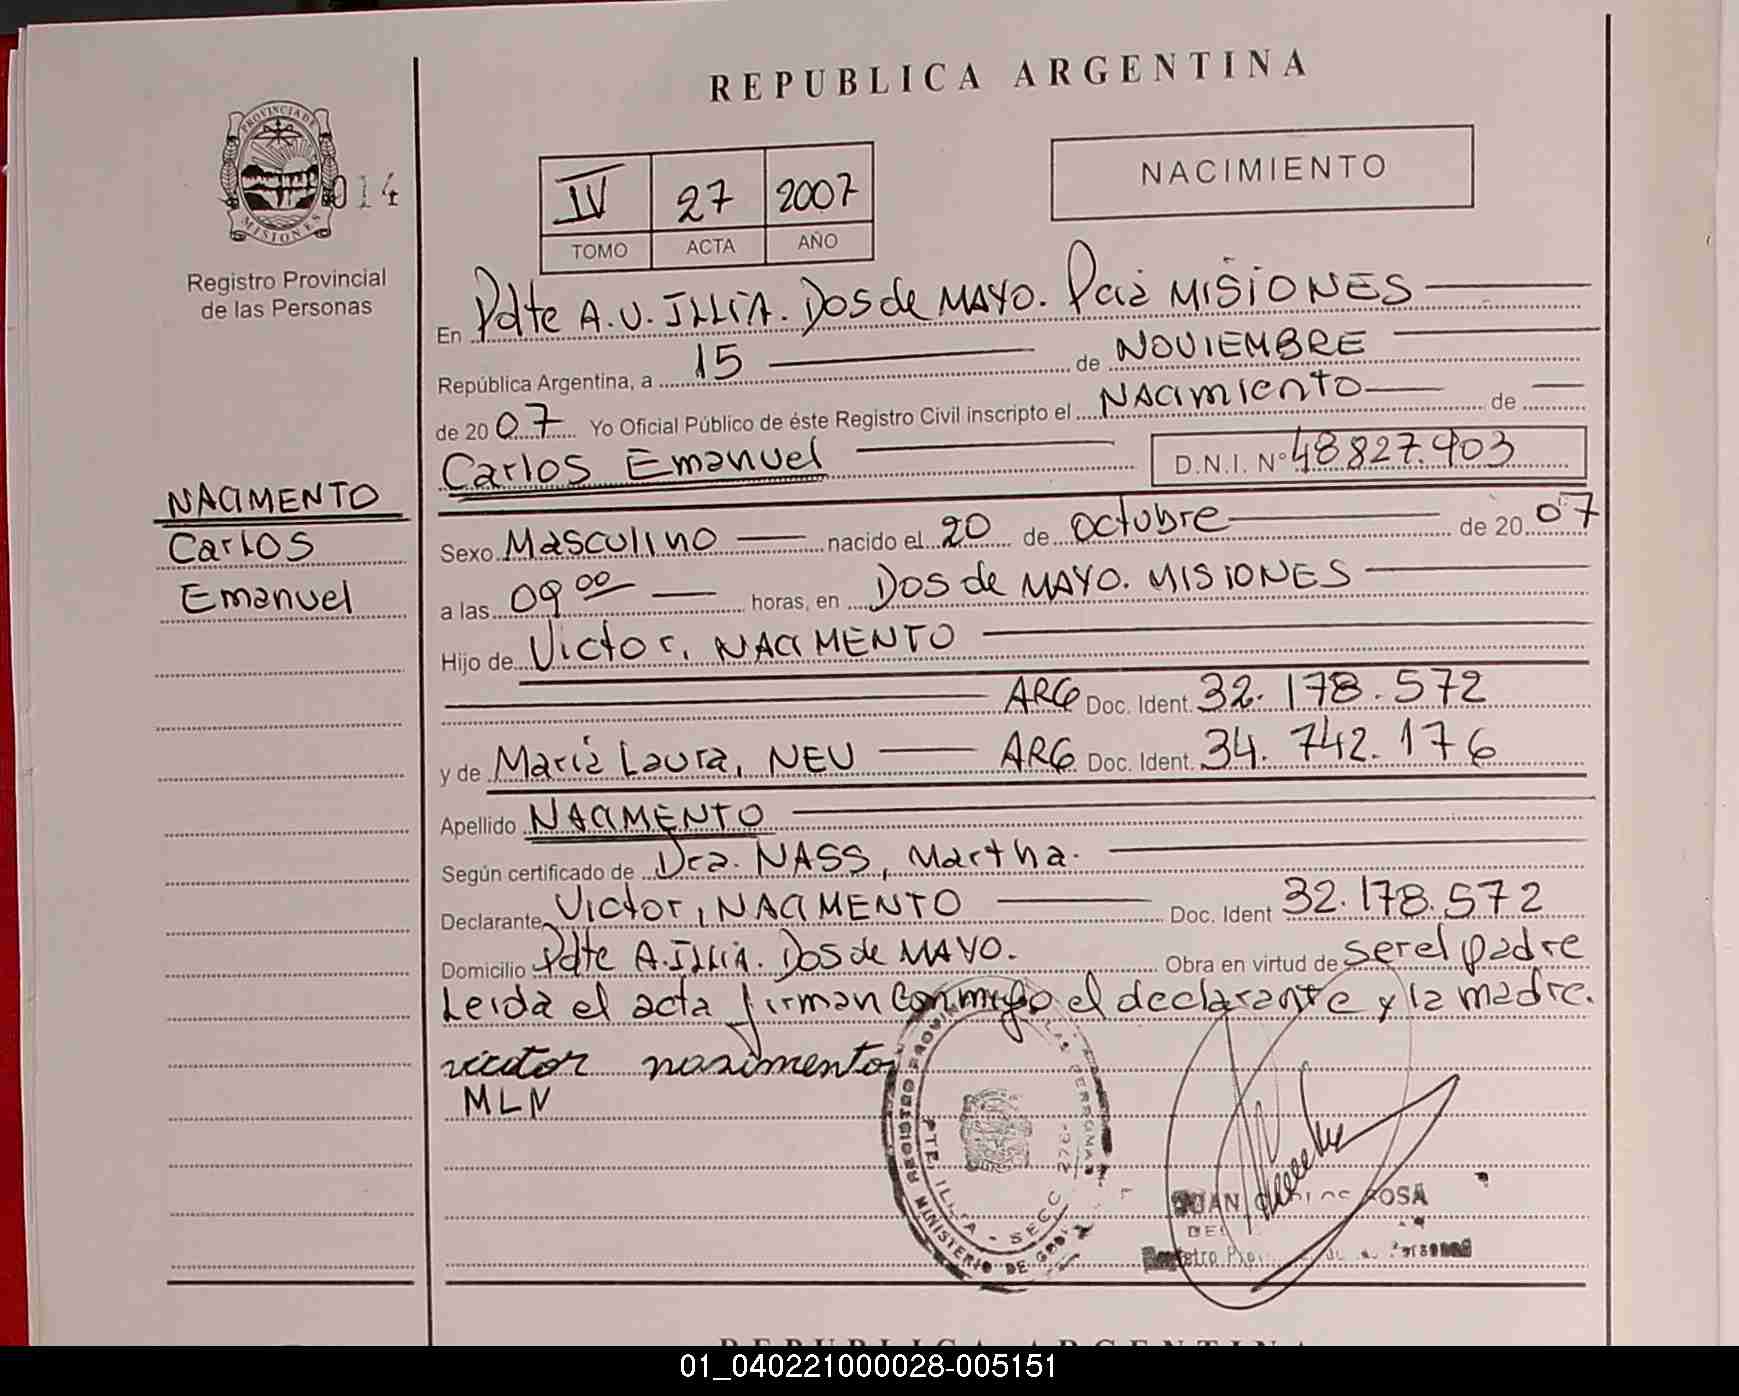 REPUBLICA ARGENTINA
PROVINCIA DE
MISIONES
014
Registro Provincial
de las Personas
IV 27 2007
TOMO ACTA AÑO
NACIMIENTO
En Pdte A.U. ILLIA. Dos de MAYO. Pcia MISIONES
República Argentina, a 15 de NOVIEMBRE
de 2007 Yo Oficial Público de éste Registro Civil inscripto el NACIMIENTO de
Carlos Emanuel D.N.I. Nº 48827.903
NACIMENTO
Carlos
Emanuel
Sexo Masculino nacido el 20 de octubre de 2007
a las 09 00 horas, en Dos de MAYO. MISIONES
Hijo de Victor, NACIMENTO
ARG Doc. Ident. 32.178.572
y de Maria Laura, NEU ARG Doc. Ident. 34.742.176
Apellido NACIMENTO
Según certificado de Dra. NASS, Martha.
Declarante Victor, NACIMENTO Doc. Ident 32.178.572
Domicilio Pdte A. ILLIA. Dos de MAYO. Obra en virtud de ser el padre
Leida el acta firman conmigo el declarante y la madre.
victor nasimento
MLN
MINISTERIO DE
SECC
ROSA
REPUBLICA ARGENTINA
01_040221000028-005151